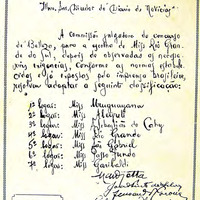 Ilmo. Snr. Director do "Diario de Noticias"
A commissão julgadora do concurso
de Belleza, para a escolha de Miss Rio Gran-
de do Sul, depois de observadas as
exigencias, conforme as normas estabele-
cidas e já expostas pela imprensa brasileira,
resolveu adoptar a seguinte classificação:
1º lugar: Miss Uruguayana
2º lugar: Miss Alegrete
3º lugar: Miss Sebastião do Cahy
4º lugar: Miss Rio Grande
5º lugar: Miss S. Gabriel
6º lugar: Miss Passo Fundo
7º lugar: Miss Garibaldi